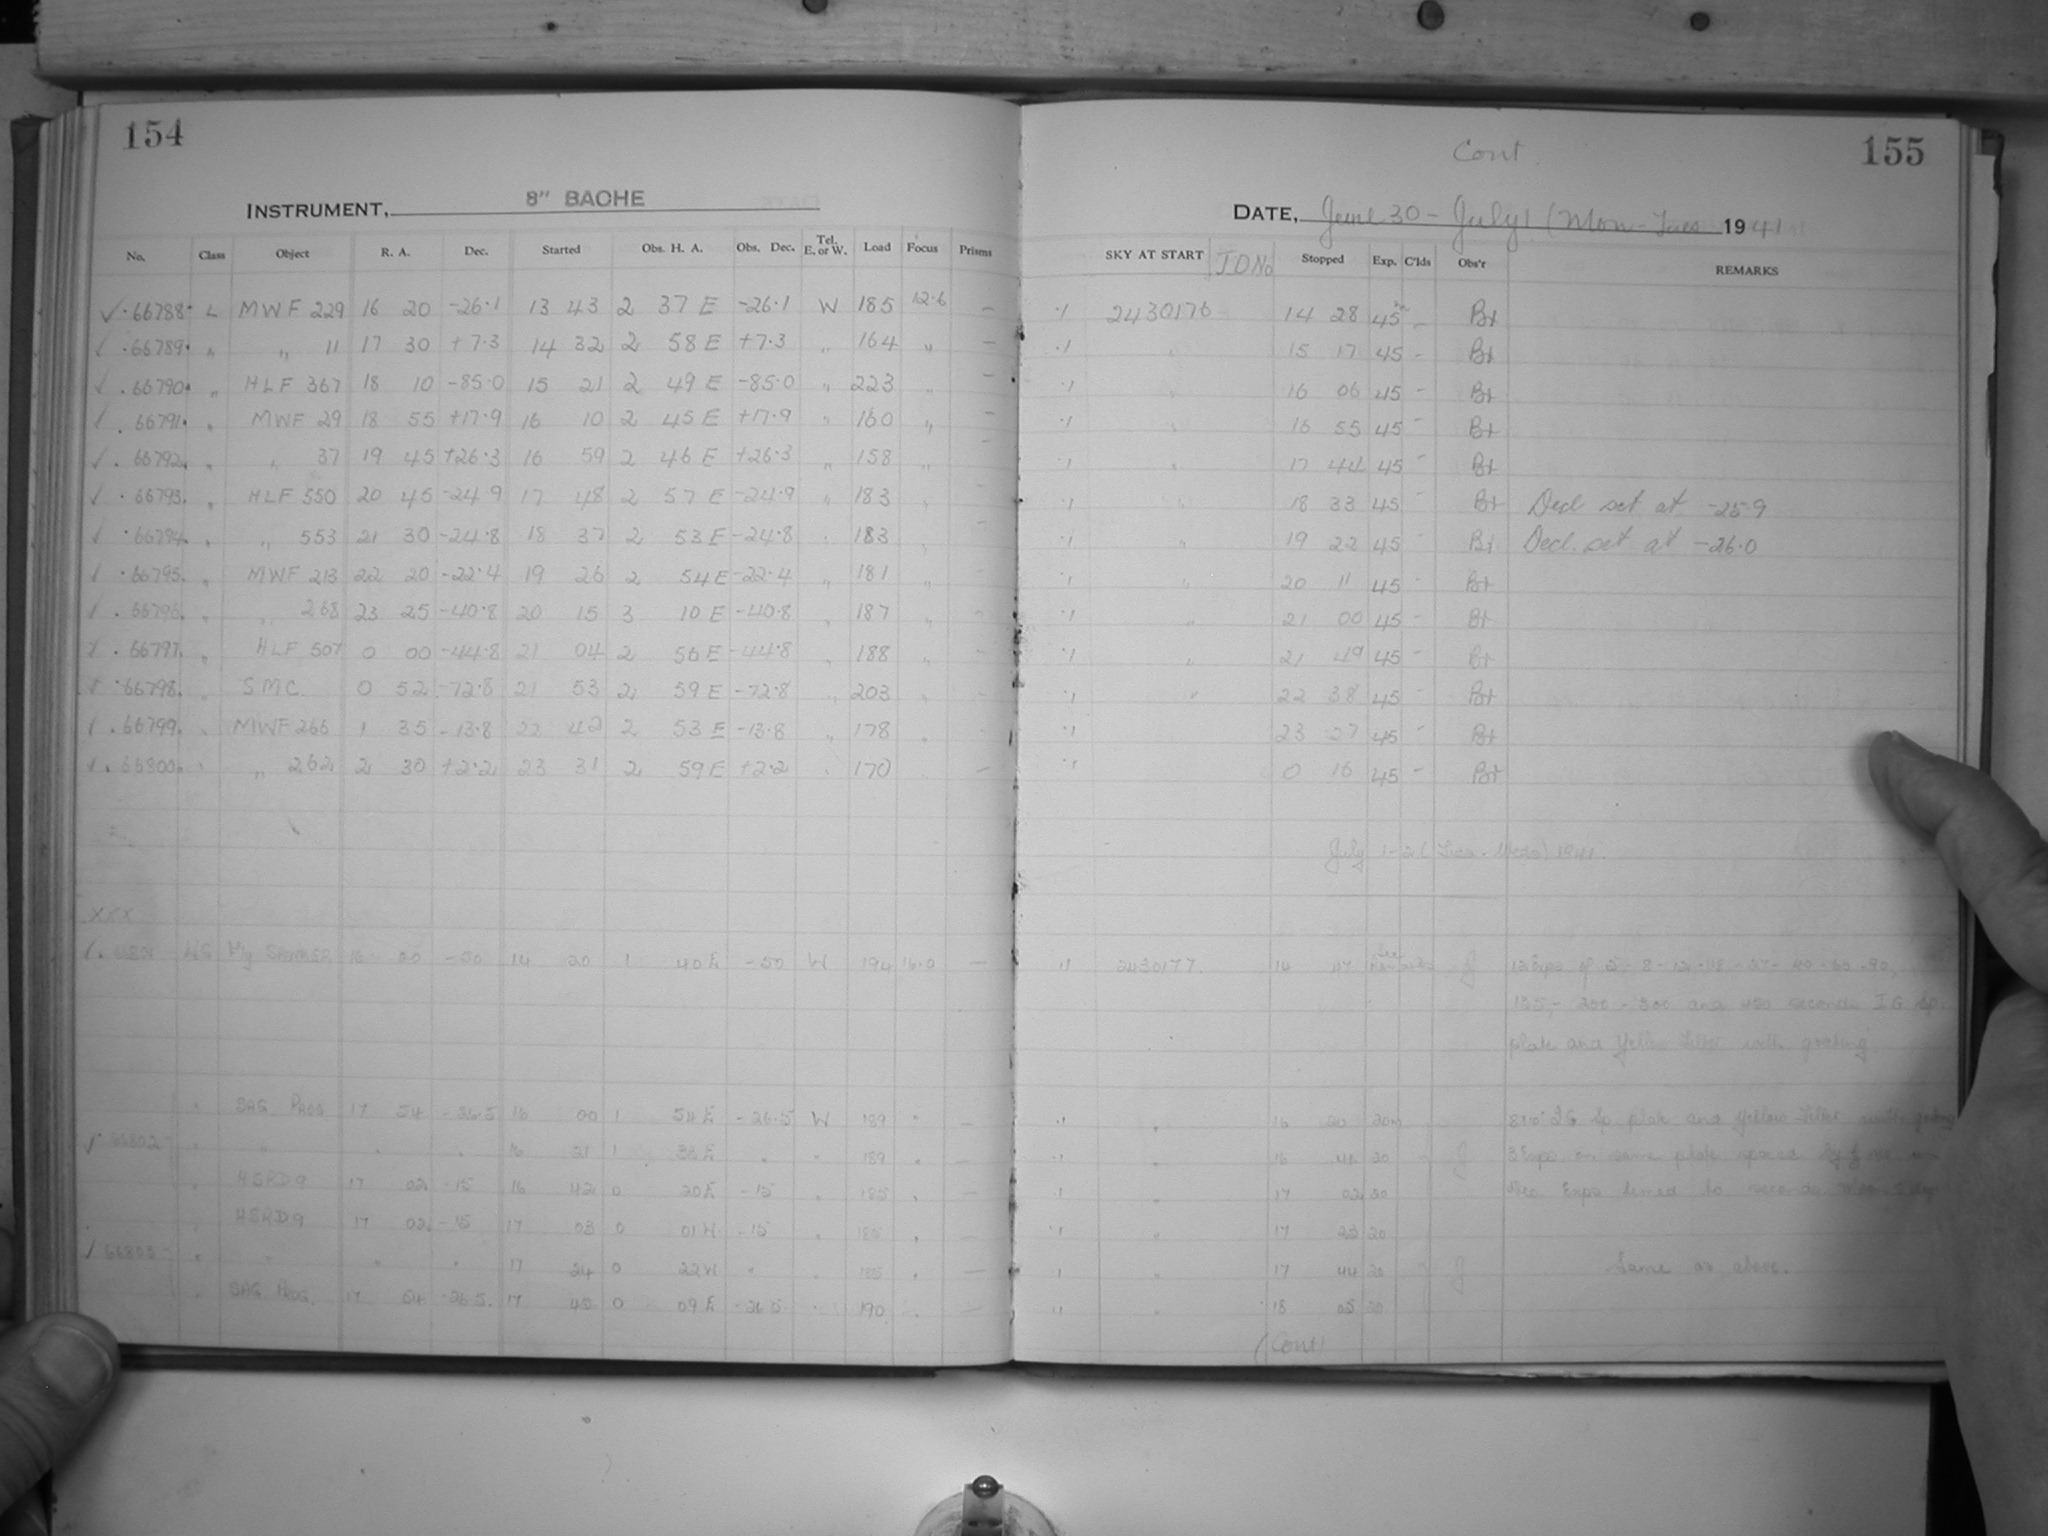 154
INSTRUMENT, 8" BACHE
No. Class Object R. A. Dec. Started Obs. H. A. Obs. Dec. Tel. E. or W. Load Focus Prisms
✓ · 66788 · L MWF 229 16 20 -26·1 13 43 2 37 E -26·1 W 185 12·6 –
✓ · 66789 · " " 11 17 30 +7·3 14 32 2 58 E +7·3 " 164 " –
✓ · 66790 · " HLF 367 18 10 -85·0 15 21 2 49 E -85·0 " 223 " –
✓ · 66791 · " MWF 29 18 55 +17·9 16 10 2 45 E +17·9 " 160 " –
✓ · 66792 · " " 37 19 45 +26·3 16 59 2 46 E +26·3 " 158 " –
✓ · 66793 · " HLF 550 20 45 -24·9 17 48 2 57 E -24·9 " 183 " –
✓ · 66794 · " " 553 21 30 -24·8 18 37 2 53 E -24·8 " 183 " –
✓ · 66795 · " MWF 213 22 20 -22·4 19 26 2 54 E -22·4 " 181 " –
✓ · 66796 · " " 268 23 25 -40·8 20 15 3 10 E -40·8 " 187 " –
✓ · 66797 · " HLF 507 0 00 -44·8 21 04 2 56 E -44·8 " 188 " –
✓ · 66798 · " SMC 0 52 -72·8 21 53 2 59 E -72·8 " 203 " –
✓ · 66799 · " MWF 266 1 35 -13·8 22 42 2 53 E -13·8 " 178 " –
✓ · 66800 · " " 262 2 30 +2·2 23 31 2 59 E +2·2 " 170 –
XXX
✓ · 66801 16 00 -50 14 20 1 40 E -50 W 194 16·0 –
" SAG PROG 17 54 -26.5 16 00 1 54 E -26·5 W 189 " –
✓ 66802 " " " " 16 21 1 33 E " " 189 " –
" HSRD9 17 02 -15 16 42 0 20 E -15 " 185 " –
HSRD9 17 02 -15 17 03 0 01 W -15 " 185 "
✓ 66803 " " " " 17 24 0 22 W " " 185 " –
" SAG PROG. 17 54 -26.5. 17 45 0 09 E -26·5 " 190 –
Cont.
155
DATE, June 30 – July 1 (Mon – Tues 1941
SKY AT START J D No Stopped Exp. C'lds Obs'r REMARKS
·1 2430176 14 28 45m – Bt
·1 " 15 17 45 – Bt
·1 " 16 06 45 – Bt
·1 " 16 55 45 – Bt
·1 " 17 44 45 – Bt
·1 " 18 33 45 – Bt Decl set at -25·9
·1 " 19 22 45 – Bt Decl. set at -26·0
·1 " 20 11 45 – Bt
·1 " 21 00 45 – Bt
·1 " 21 49 45 – Bt
·1 " 22 38 45 – Bt
·1 23 27 45 – Bt
·1 0 16 45 – Bt
July 1-2 (Tues - Weds) 1941.
·1 2430177. 14 47 See Remarks J 12 Exps of 5 - 8 - 12 - 18 - 27 - 40 - 60 - 90,
135, - 200 - 300 and 450 seconds I G Sp.
plate and Yellow Filter with grating
·1 " 16 20 20m 8x10 I G Sp plate and Yellow Filter with grating
·1 " 16 41 20 J 3 Exps on same plate spaced by
·1 " 17 02 20 Dec. Exps timed to seconds
·1 " 17 23 20
·1 " 17 44 20 J Same as above.
·1 " 18 05 20
(Cont)